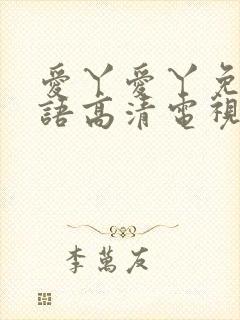 愛丫愛丫免
語高清電視
李萬友